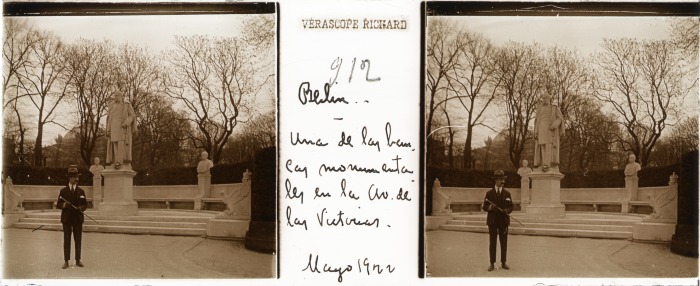 VÉRASCOPE RICHARD
912
Berlin..
—
Una de las ban,
cas monumenta
les en la Av. de
las Victorias.
Mayo 1922